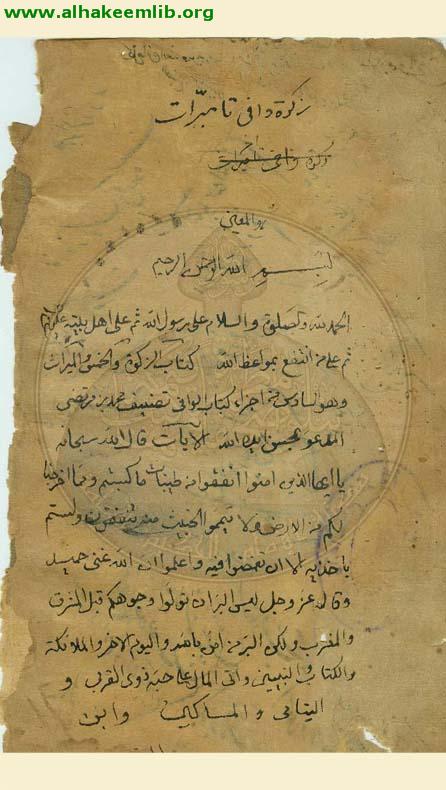 www.alhakeemlib.org
زكوة وافى تا مبرّات
زكوة وافى تا مبرات
والمعين
بسم الله الرحمن الرحيم
الحمد لله والصلوة والسلام على رسول الله ثم على اهل بيته
ثم على من انتفع بمواعظ الله كتاب الزكوة والخمس والمبرات
وهو السادس من اجزاء كتاب الوافى تصنيف محمد بن مرتضى
المدعو بمحسن ايده الله الآيات قال الله سبحانه
يا ايها الذين امنوا انفقوا من طيبات ما كسبتم ومما اخرجنا
لكم من الارض ولا تيمموا الخبيث منه تنفقون ولستم
باخذيه الا ان تغمضوا فيه واعلموا ان الله غنى حميد
وقال عز وجل ليس البر ان تولوا وجوهكم قبل المشرق
والمغرب ولكن البر من امن بالله واليوم الاخر والملائكة
والكتاب والنبيين واتى المال على حبه ذوى القربى و
اليتامى والمساكين وابن